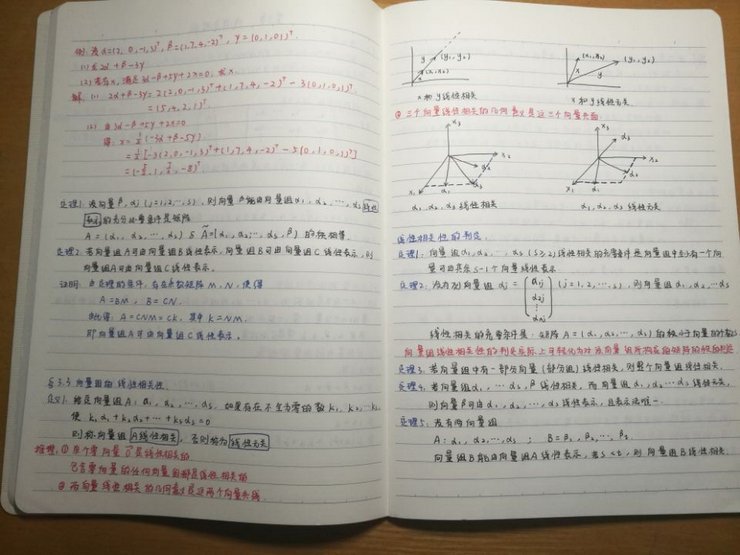 例: 设α=(2, 0, -1, 3)ᵀ, β=(1, 7, 4, -2)ᵀ, γ=(0, 1, 0, 1)ᵀ.
(1) 求 2α+β-3γ
(2) 若有x, 满足3α-β+5γ+2x=0, 求x.
解: (1) 2α+β-3γ=2(2, 0, -1, 3)ᵀ+(1, 7, 4, -2)ᵀ-3(0, 1, 0, 1)ᵀ
=(5, 4, 2, 1)ᵀ
(2) 由3α-β+5γ+2x=0
得: x=½(-3α+β-5γ)
=½[-3(2, 0, -1, 3)ᵀ+(1, 7, 4, -2)ᵀ-5(0, 1, 0, 1)ᵀ]
=(-5/2, 1, 7/2, -8)ᵀ
定理1: 设向量β, αj (j=1, 2, …, s), 则向量β能由向量组α₁, α₂, …, αs 线性
表示的充分必要条件是矩阵
A=(α₁, α₂, …, αs) 与 Ã=(α₁, α₂, …, αs, β) 的秩相等.
定理2: 若向量组A可由向量组B线性表示, 向量组B可由向量组C线性表示, 则
向量组A可由向量组C线性表示.
证明: 由定理的条件, 存在系数矩阵M, N, 使得
A=BM, B=CN.
由此得: A=CNM=CK, 其中K=NM.
即向量组A可由向量组C线性表示.
§3.3 向量组的线性相关性
定义1: 给定向量组A: α₁, α₂, …, αs, 如果存在不全为零的数k₁, k₂, …, ks
使 k₁α₁+k₂α₂+…+ksαs=0
则称向量组A线性相关, 否则称为线性无关
推理: ① 单个零向量0是线性相关的
包含零向量的任何向量组都是线性相关的
② 两向量线性相关的几何意义是这两个向量共线
y (y₁, y₂)
x (x₁, x₂)
x和y线性相关
(x₁, x₂) (y₁, y₂)
x y
x和y线性无关
③ 三个向量线性相关的几何意义是这三个向量共面
x₃ x₂ x₁ α₁ α₂ α₃
α₁, α₂, α₃ 线性相关
x₃ α₃ x₂ x₁ α₁ α₂
α₁, α₂, α₃ 线性无关
线性相关性的判定
定理1: 向量组α₁, α₂, …, αs (s≥2)线性相关的充要条件是向量组中至少有一个向
量可由其余s-1个向量线性表示
定理2: 设有列向量组αj=(a₁j a₂j ⋮ anj) (j=1, 2, …, s), 则向量组α₁, α₂, …αs
线性相关的充要条件是: 矩阵A=(α₁, α₂, …, αs)的秩小于向量的个数s
向量组线性相关性的判定实际上可转化为对该向量组所构成的矩阵的秩的判定
定理3: 若向量组中有一部分向量(部分组)线性相关, 则整个向量组线性相关.
定理4: 若向量组α₁, …αs, β线性相关, 而向量组α₁, α₂, …αs线性无关,
则向量β可由α₁, α₂, …, αs线性表示, 且表示法唯一.
定理5: 设有两向量组
A: α₁, α₂, …, αs ; B=β₁, β₂, …, βt.
向量组B能由向量组A线性表示, 若s<t, 则向量组B线性相关.